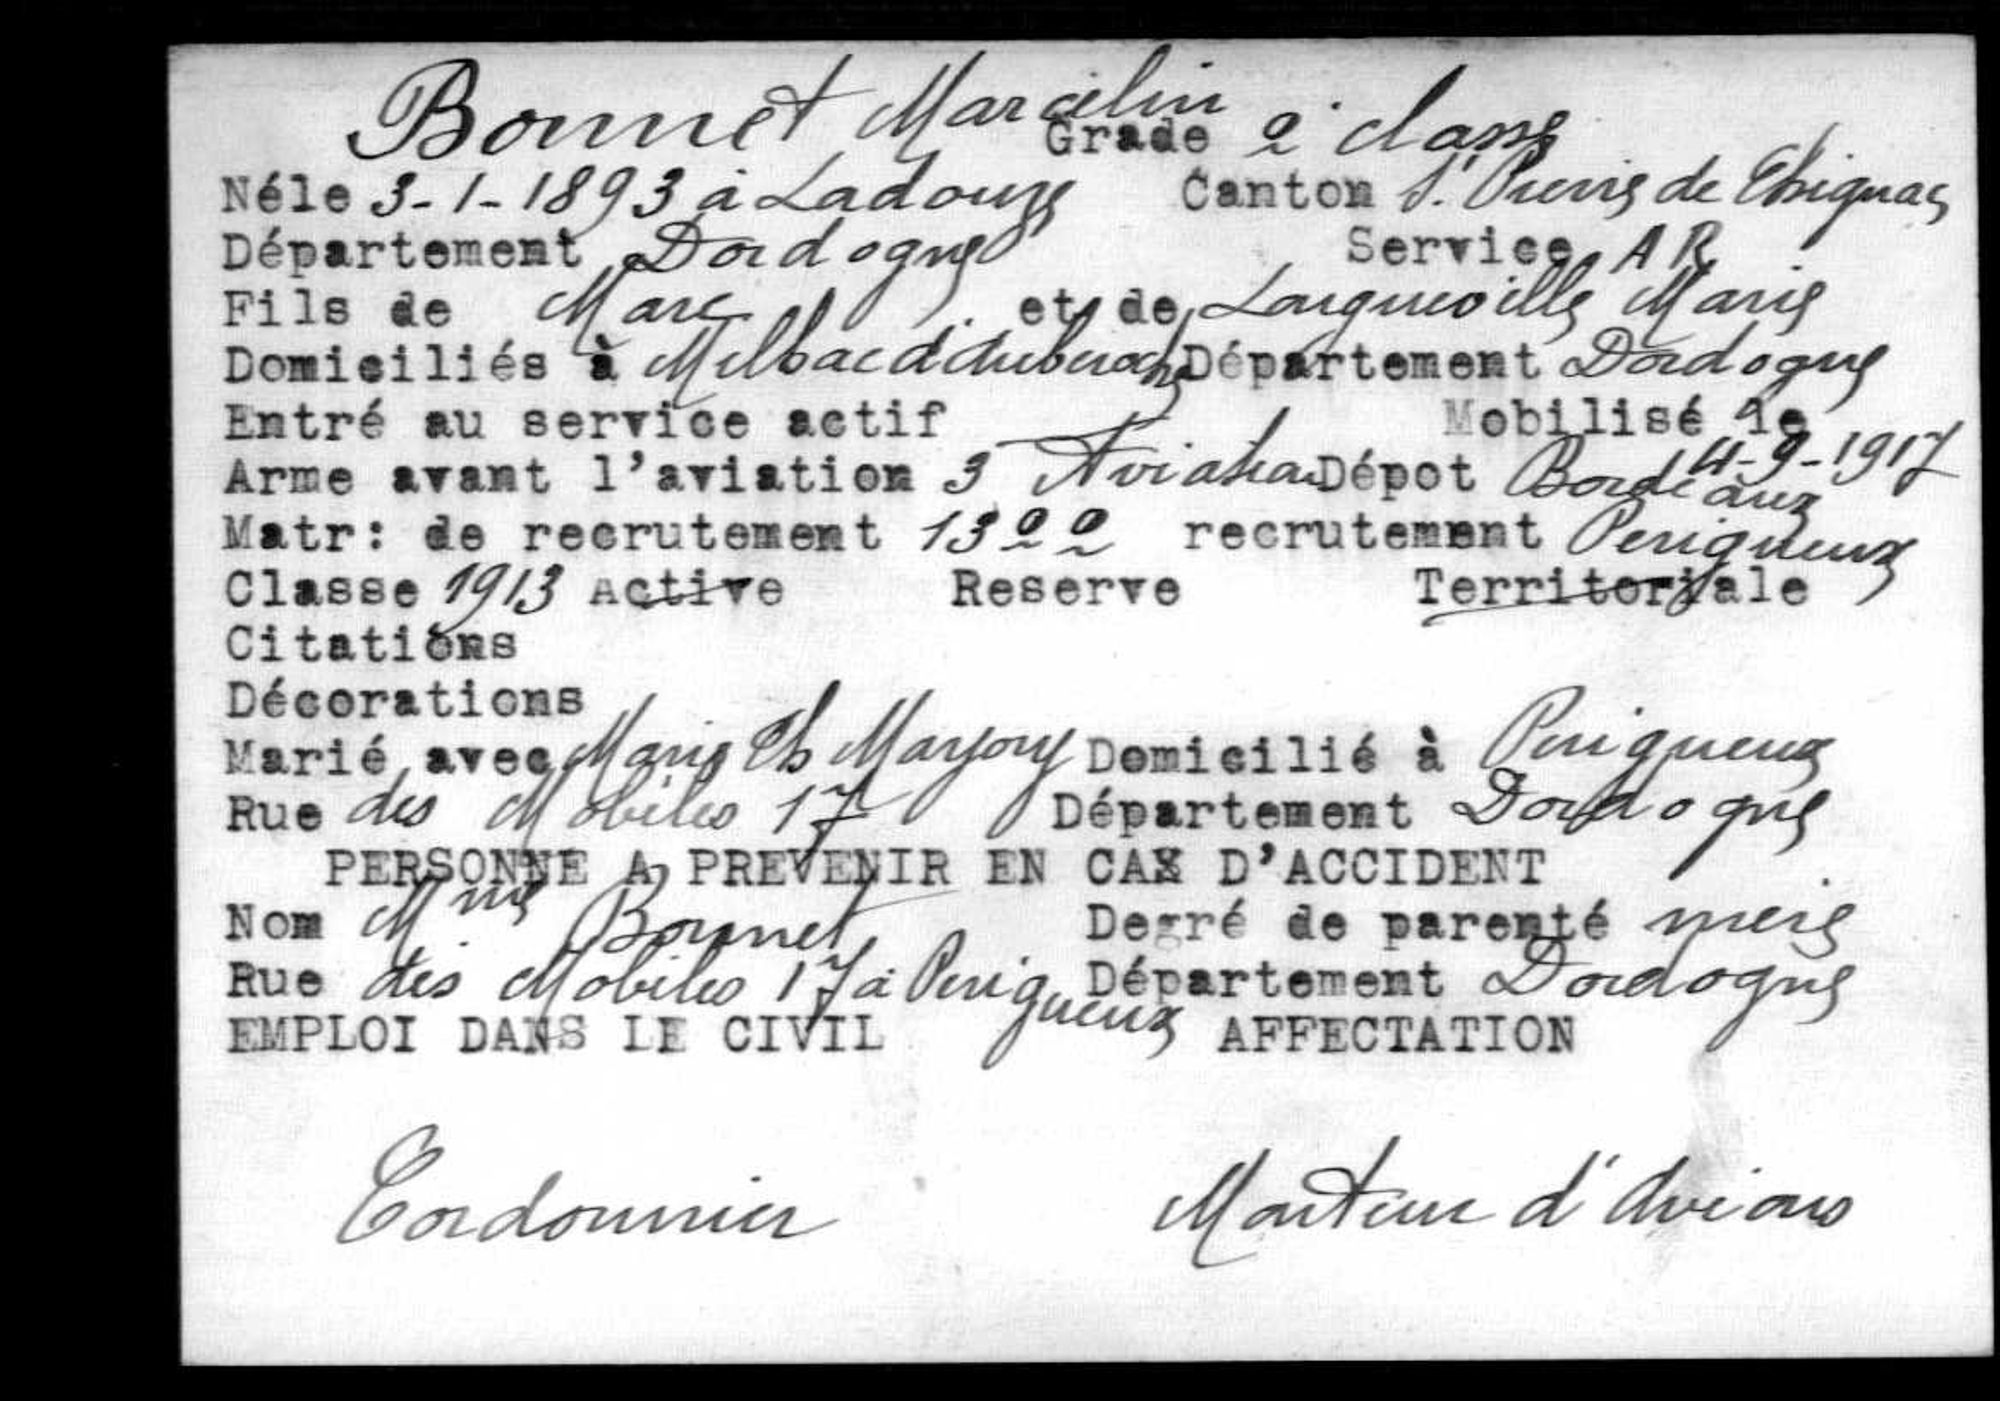 Bonnet Marcelin Grade 2e classe
Néle 3-1-1893 à Ladouze Canton St Pierre de Chignac
Département Dordogne Service AR
Fils de Marc et de Longueville Marie
Domiciliés à Milhac d'Auberoche Département Dordogne
Entré au service actif Mobilisé le 4-9-1917
Arme avant l'aviation 3 Aviation Dépot Bordeaux
Matr: de recrutement 1322 recrutement Perigueux
Classe 1913 Active Reserve Territoriale
Citations
Décorations
Marié avec Marie Domicilié à Perigueux
Rue des Mobiles 17 Département Dordogne
PERSONNE A PREVENIR EN CAS D'ACCIDENT
Nom Mme Bonnet Degré de parenté mère
Rue des Mobiles 17 à Perigueux Département Dordogne
EMPLOI DANS LE CIVIL AFFECTATION
Cordonnier Monteur d'Avions